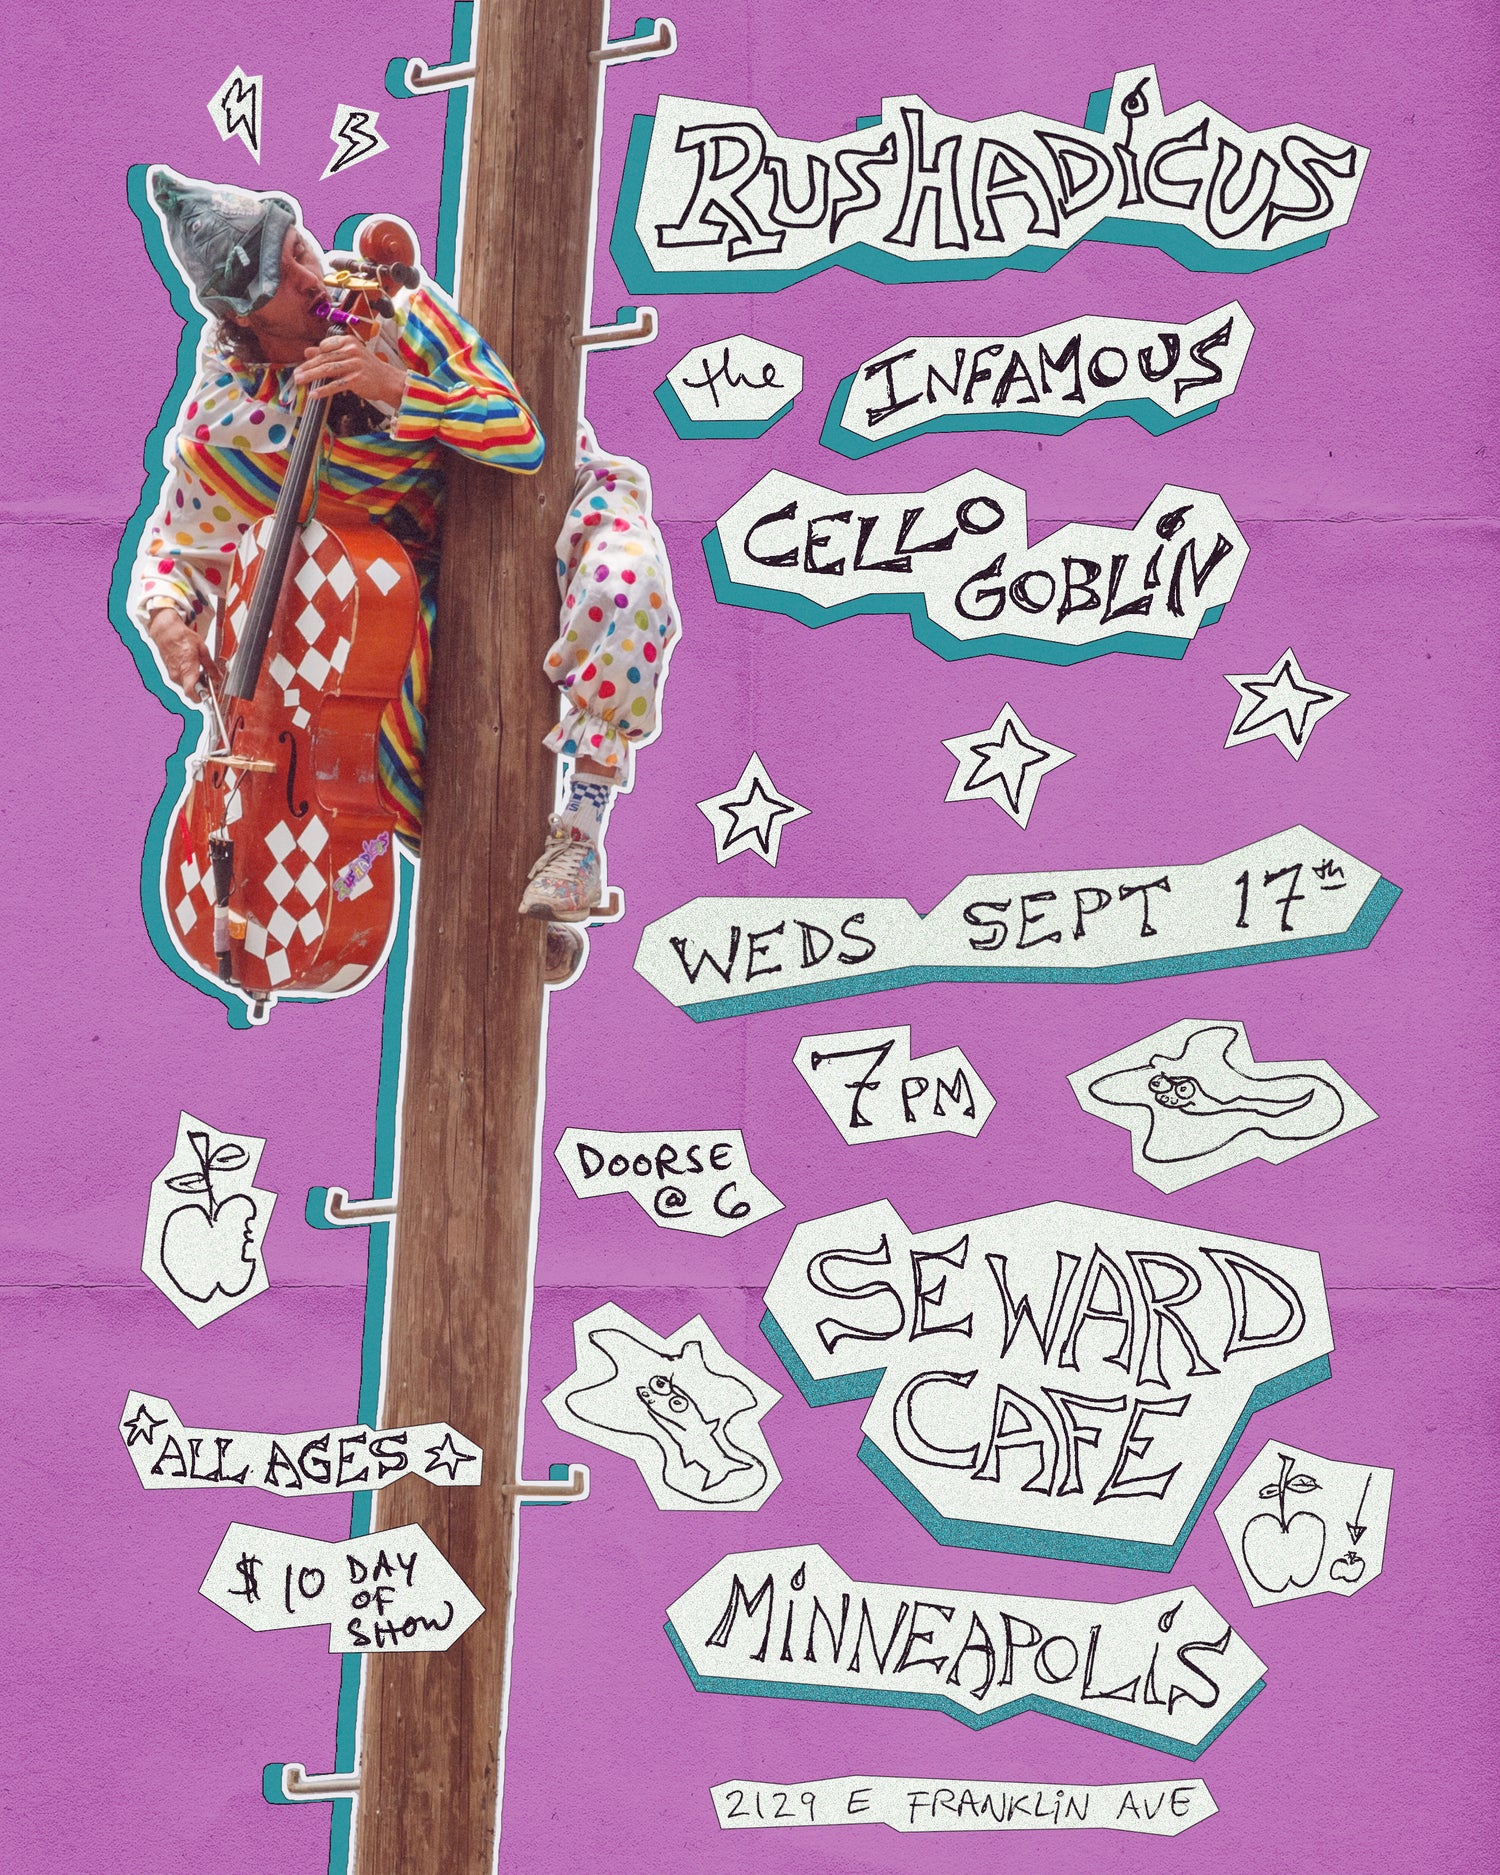 RUSHADiCUS
the INFAMOUS
CELLO
GOBLiN
WEDS SEPT 17th
7PM
DOORSE
@ 6
SEWARD
CAFE
ALL AGES
$10 DAY
OF
SHOW
MiNNEAPOLiS
2129 E FRANKLiN AVE